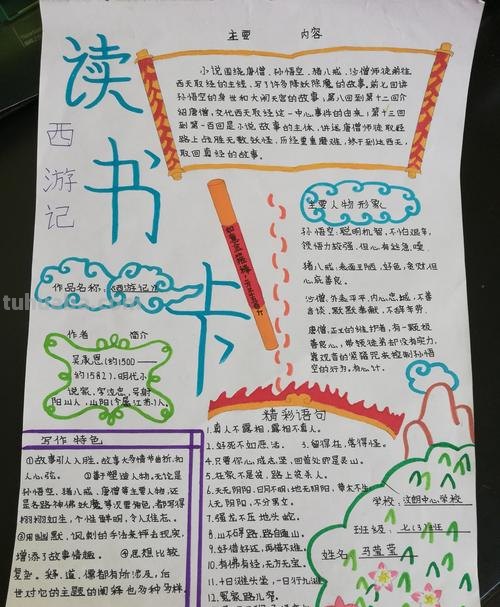 读书卡
西游记
主要 内容
小说围绕唐僧、孙悟空、猪八戒、沙僧师徒前往
西天取经的主线，写了许多降妖除魔的故事，前七回讲
孙悟空的身世和大闹天宫的故事；第八回到第十二回介
绍唐僧，交代西天取经这一中心事件的由来；第十三回
到第一百回是小说故事的主体，讲述唐僧师徒取经
路上战胜无数妖怪，历经重重磨难，终于到达西天，
取回真经的故事。
主要人物形象
孙悟空：聪明机智，不怕艰辛，
彼岸力较强，但心有些急噪
猪八戒：表面丑陋，好色，贪财，但
心底善良。
沙僧：外表平平，内心忠诚，不善
言谈，默默奉献，不辞辛劳。
唐僧：正义的维护者，有一颗慈
善良心，带领徒弟却没有实力，
靠观音的紧箍咒来控制孙悟
空的行为。有心计。
作品名称：《西游记》
作者 简介
吴承恩（约1500——
约1582），明代小
说家，字汝忠，号射
阳山人，山阳（今属江苏）人。
写作特色
①故事引人入胜，故事大多情节曲折，扣
人心弦。 ②善于塑造人物，无论是
孙悟空、猪八戒、唐僧等主要人物，还
是各路神佛妖魔等次要角色，都写得
栩栩如生，个性鲜明，令人难忘。
③用幽默、讽刺的手法来抨击现实，
增添了故事情趣。 ④思想比较
复杂。释、道、儒都有所涉及，后
世对它的主题的阐释也多种多样。
精彩语句
1.真人不露相，露相不真人。
2.好死不如恶活。 3.留得在，落得怪。
4.只要你心成志坚，回首处即是灵山。
5.在家不是贫，路上贫杀人。
6.天无阴阳，日月不明；地无阴阳，草木不生
人无阴阳，不分男女。
7.强龙不压地头蛇
8.山不碍路，路自通山。
9.好借好还，再借不难。
10.有佛有经，无方无宝
11.十日滩头坐，一日行九滩
12.冤家路儿窄。
学校：汶朗中心学校
班级：七（3）班
姓名：马莹莹